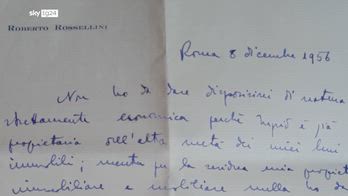 sky tg24
ROBERTO ROSSELLINI
Roma 8 dicembre 1956
Non ho da dare disposizioni di natura
strettamente economica perché Ingrid è già
proprietaria dell'altra metà dei miei beni
immobili; mentre per la residua mia proprietà
immobiliare e mobiliare nulla ho da